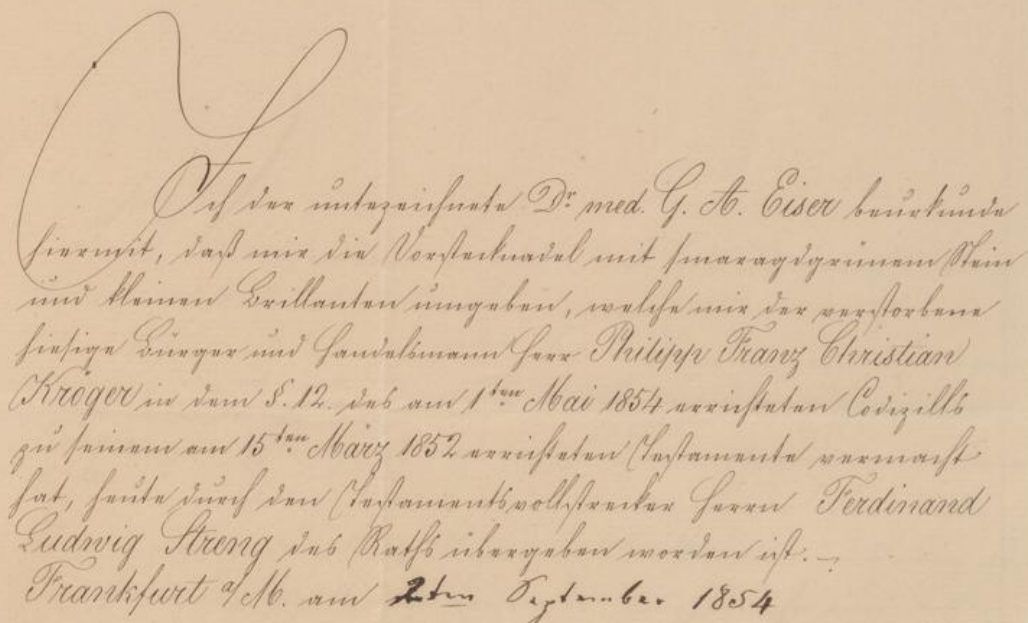 Ich der unterzeichnete Dr med. G. A. Eiser beurkunde
hiermit, daß mir die Vorstecknadel mit smaragdgrünem Stein
und kleinen Brillanten umgeben, welche mir der verstorbene
hiesige Bürger und Handelsmann Herr Philipp Franz Christian
Kröger in dem §. 12. des am 1ten Mai 1854 errichteten Codizills
zu seinem am 15ten März 1852 errichteten Testamente vermacht
hat, heute durch den Testamentsvollstrecker Herrn Ferdinand
Ludwig Streng des Raths übergeben worden ist. –
Frankfurt a/M. am 2ten September 1854